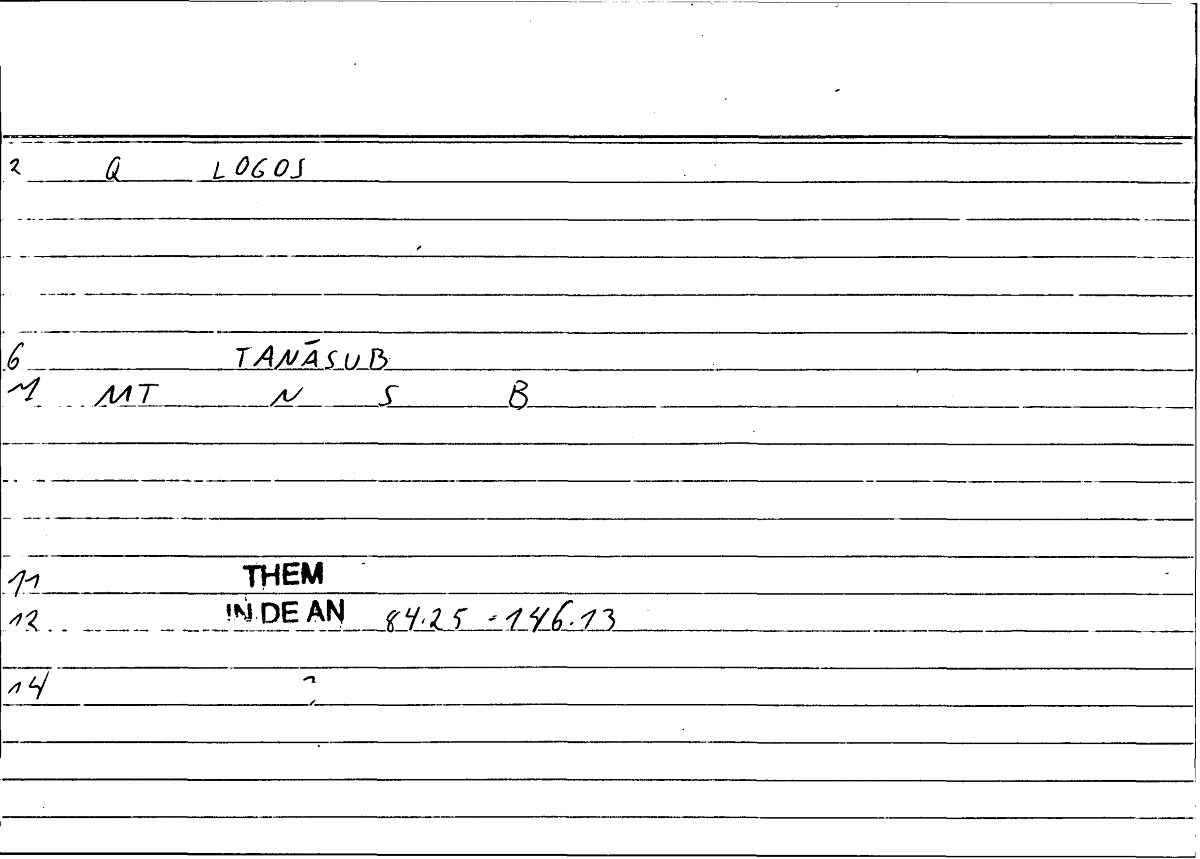 2 Q LOGOS
6 TANĀSUB
M MT N S B
11 THEM
12 IN DE AN 84.25 - 146.13
14 ?